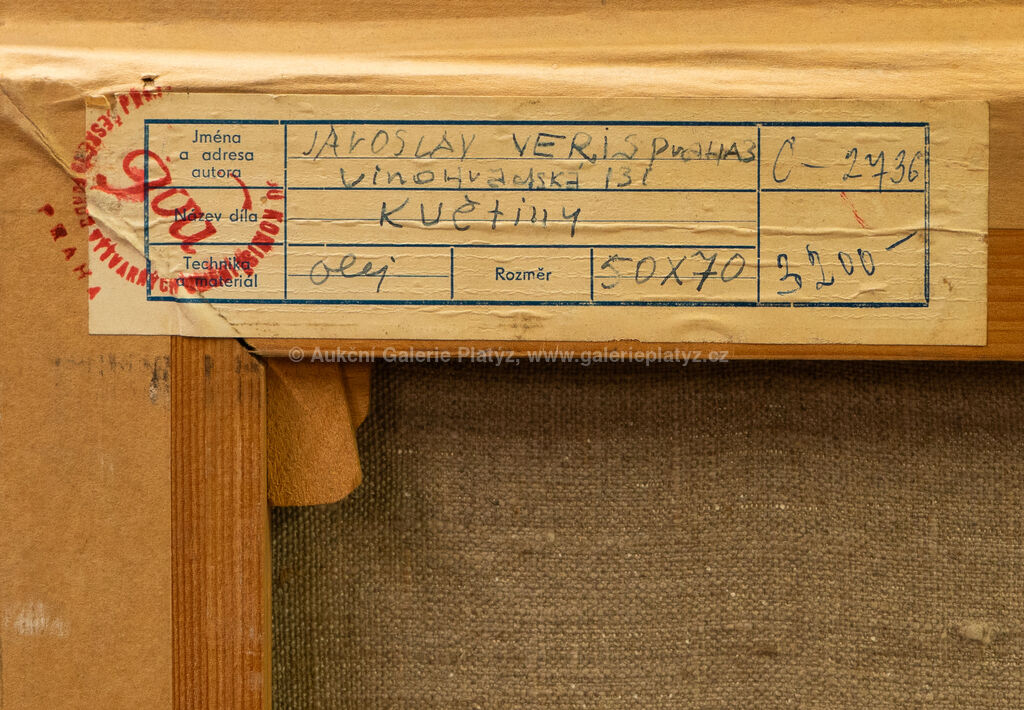 Jména
a adresa
autora
JAROSLAV VERIS PrAHA3
VinoHradská 131
C - 2736
Název díla
KUčtiny
Technika
a materiál
olej
Rozměr
50X70
3200 -
© Aukční Galerie Platýz, www.galerieplatyz.cz
PRAHA